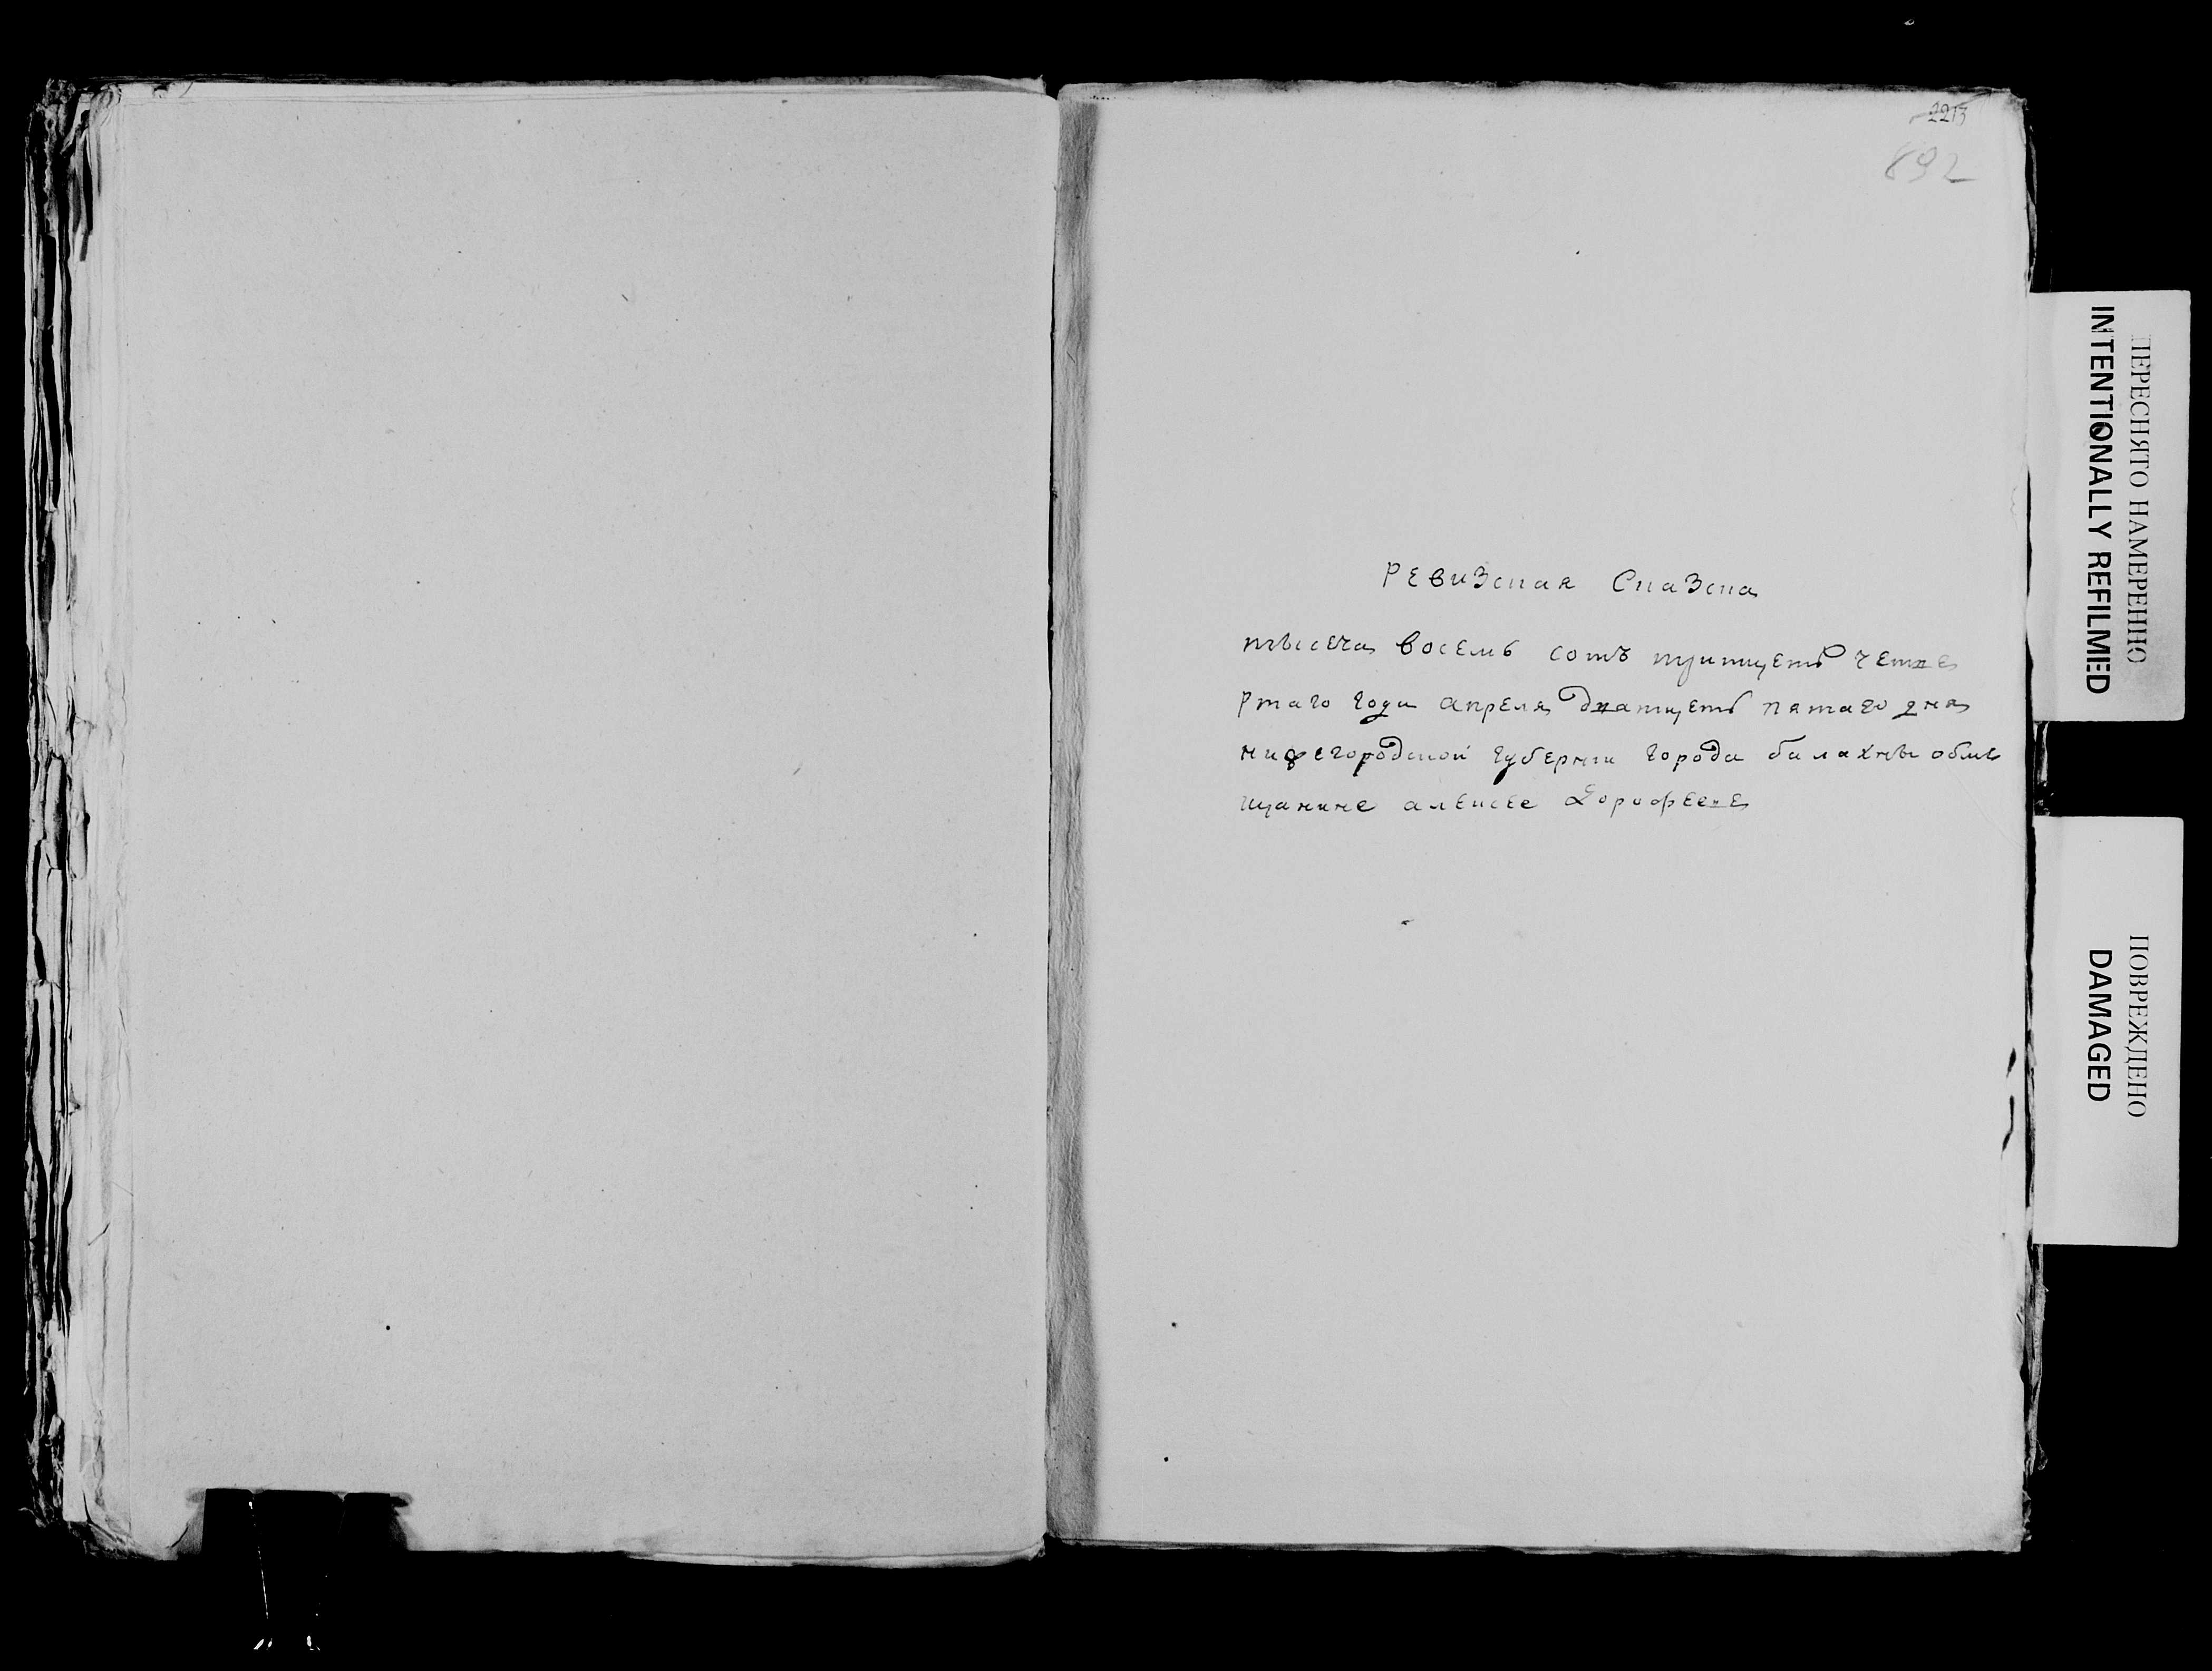 2213
892
Ревизская Сказска
тысеча восемь сотъ тритцеть четве
ртаго года апреля дватцеть пятаго дня
нижегородской губернии города балахны обме
щанине алексее Дорофееве
ПЕРЕСНЯТО НАМЕРЕННО
INTENTIONALLY REFILMED
ПОВРЕЖДЕНО
DAMAGED